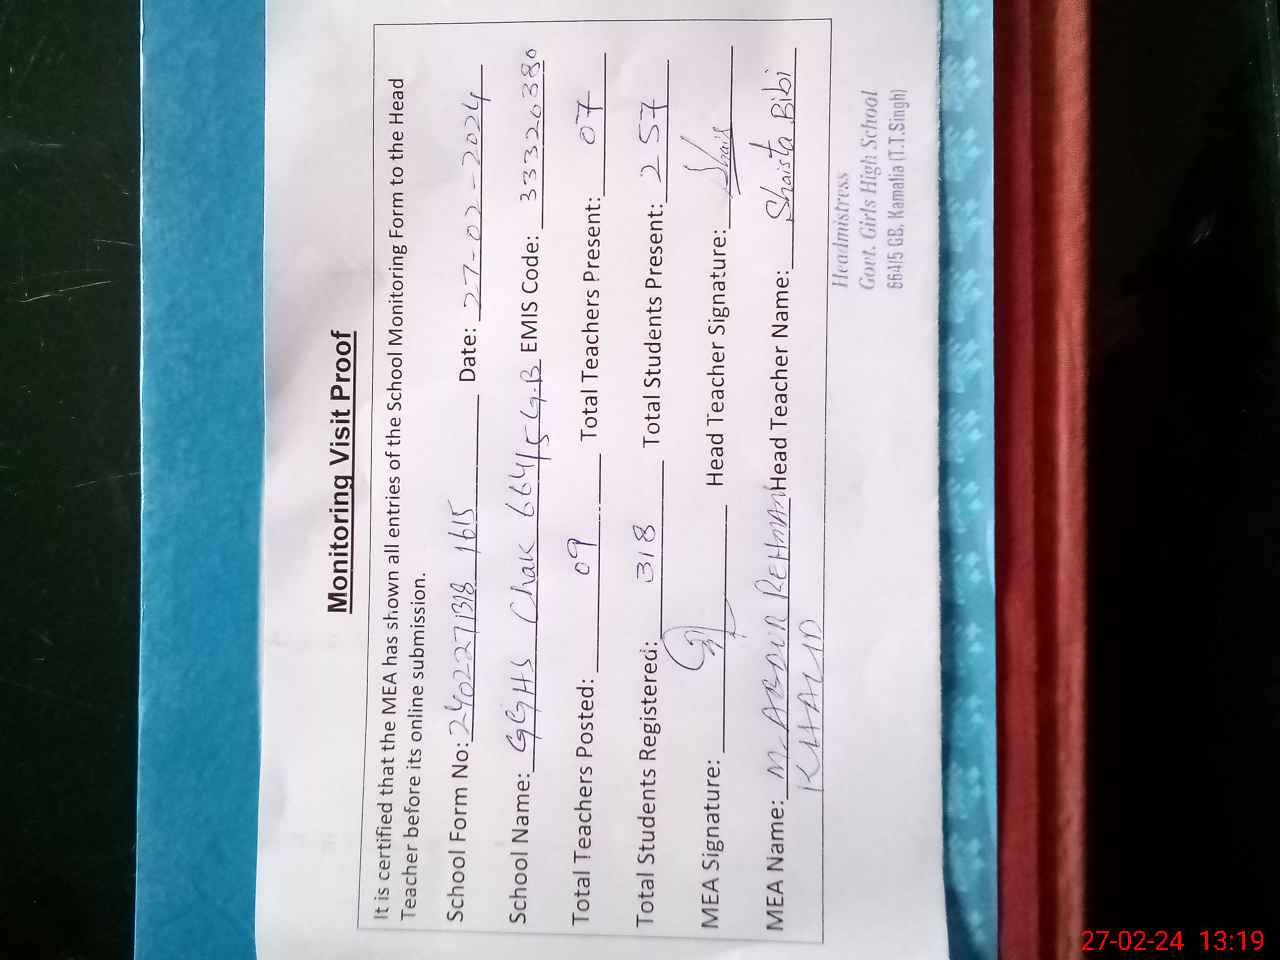 Monitoring Visit Proof
It is certified that the MEA has shown all entries of the School Monitoring Form to the Head
Teacher before its online submission.
School Form No: 2402271318 1615 Date: 27-02-2024
School Name: GGHS Chak 664/5 G.B EMIS Code: 33320380
Total Teachers Posted: 09 Total Teachers Present: 07
Total Students Registered: 318 Total Students Present: 257
MEA Signature: Head Teacher Signature:
MEA Name: M. ABDUR REHMAN Head Teacher Name: Shaista Bibi
KHALID
Headmistress
Govt. Girls High School
664/5 GB, Kamalia (T.T.Singh)
27-02-24 13:19